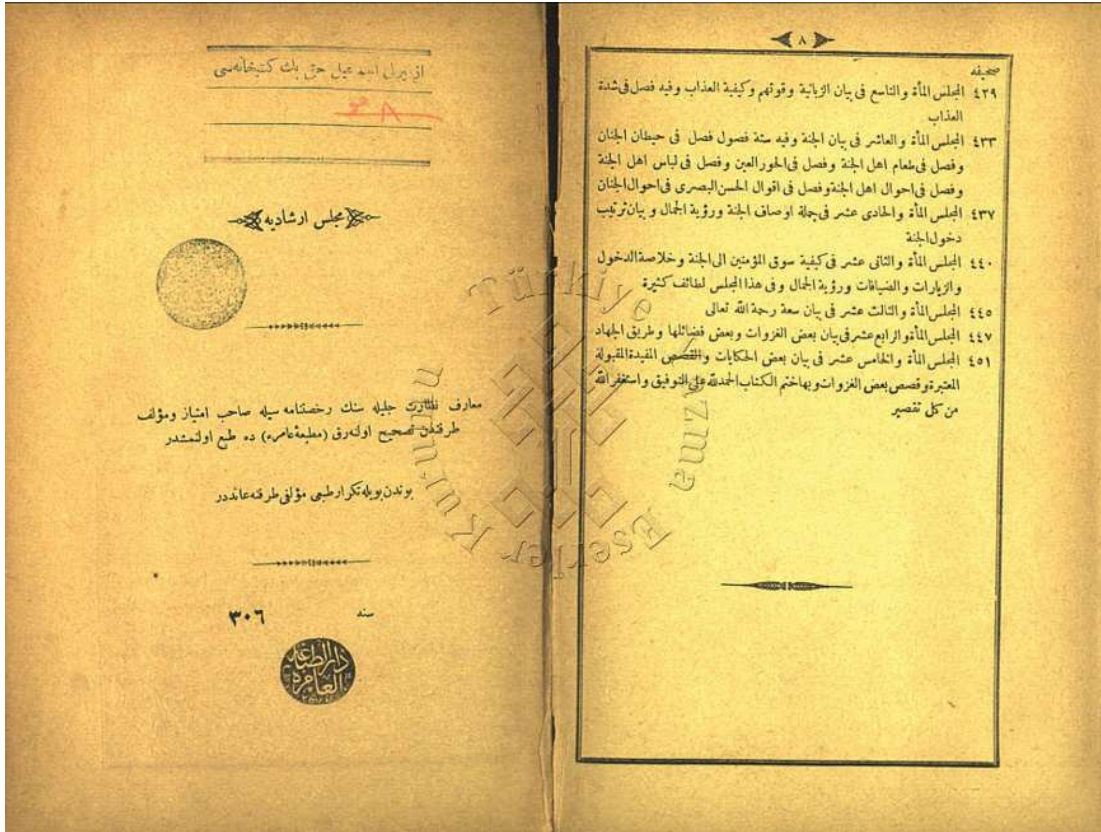 ﴿ ٨ ﴾
صحيفه
٤٢٩ المجلس المأة والتاسع فى بيان الزبانية وقوتهم وكيفية العذاب وفيه فصل فى شدة
العذاب
٤٣٣ المجلس المأة والعاشر فى بيان الجنة وفيه ستة فصول فصل فى حيطان الجنان
وفصل فى طعام اهل الجنة وفصل فى الحور العين وفصل فى لباس اهل الجنة
وفصل فى احوال اهل الجنة وفصل فى اقوال الحسن البصرى فى احوال الجنان
٤٣٧ المجلس المأة والحادى عشر فى جملة اوصاف الجنة ورؤية الجمال و بيان ترتيب
دخول الجنة
٤٤٠ المجلس المأة والثانى عشر فى كيفية سوق المؤمنين الى الجنة وخلاصة الدخول
والزيارات والضيافات ورؤية الجمال وفى هذا المجلس لطائف كثيرة
٤٤٥ المجلس المأة والثالث عشر فى بيان سعة رحمة الله تعالى
٤٤٧ المجلس المأة والرابع عشر فى بيان بعض الغزوات وبعض فضائلها وطريق الجهاد
٤٥١ المجلس المأة والخامس عشر فى بيان بعض الحكايات والقصص المفيدة المقبولة
المعتبرة وقصص بعض الغزوات وبها ختم الكتاب الحمد لله على التوفيق واستغفر الله
من كل تقصير
ازميرلى اسمعيل حقى بك كتبخانه‌سى
مجلس ارشاديه
معارف نظارت جليله سنك رخصتنامه سيله صاحب امتياز ومؤلف
طرفندن تصحيح اولنه‌رق (مطبعۀ عامره) ده طبع اولنمشدر
بوندن بويله تكرار طبعى مؤلفى طرفنه عائددر
سنه ٣٠٦
دار الطباعه
العامره
Türkiye Yazma Eserler Kurumu